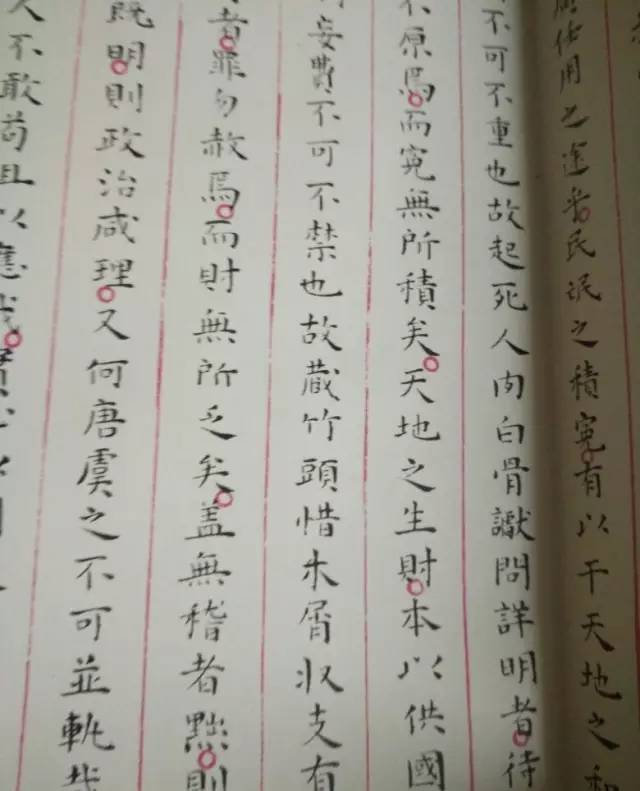 仕用之途者民氓之積冤有以干天地之和
不可不重也故起死人肉白骨讞問詳明者待
不原焉而冤無所積矣天地之生財本以供國
妄費不可不禁也故藏竹頭惜木屑収支有
者罪勿赦焉而財無所乏矣盖無稽者黜則
既明則政治咸理又何唐虞之不可並軌哉
人不敢苟且以應哉實